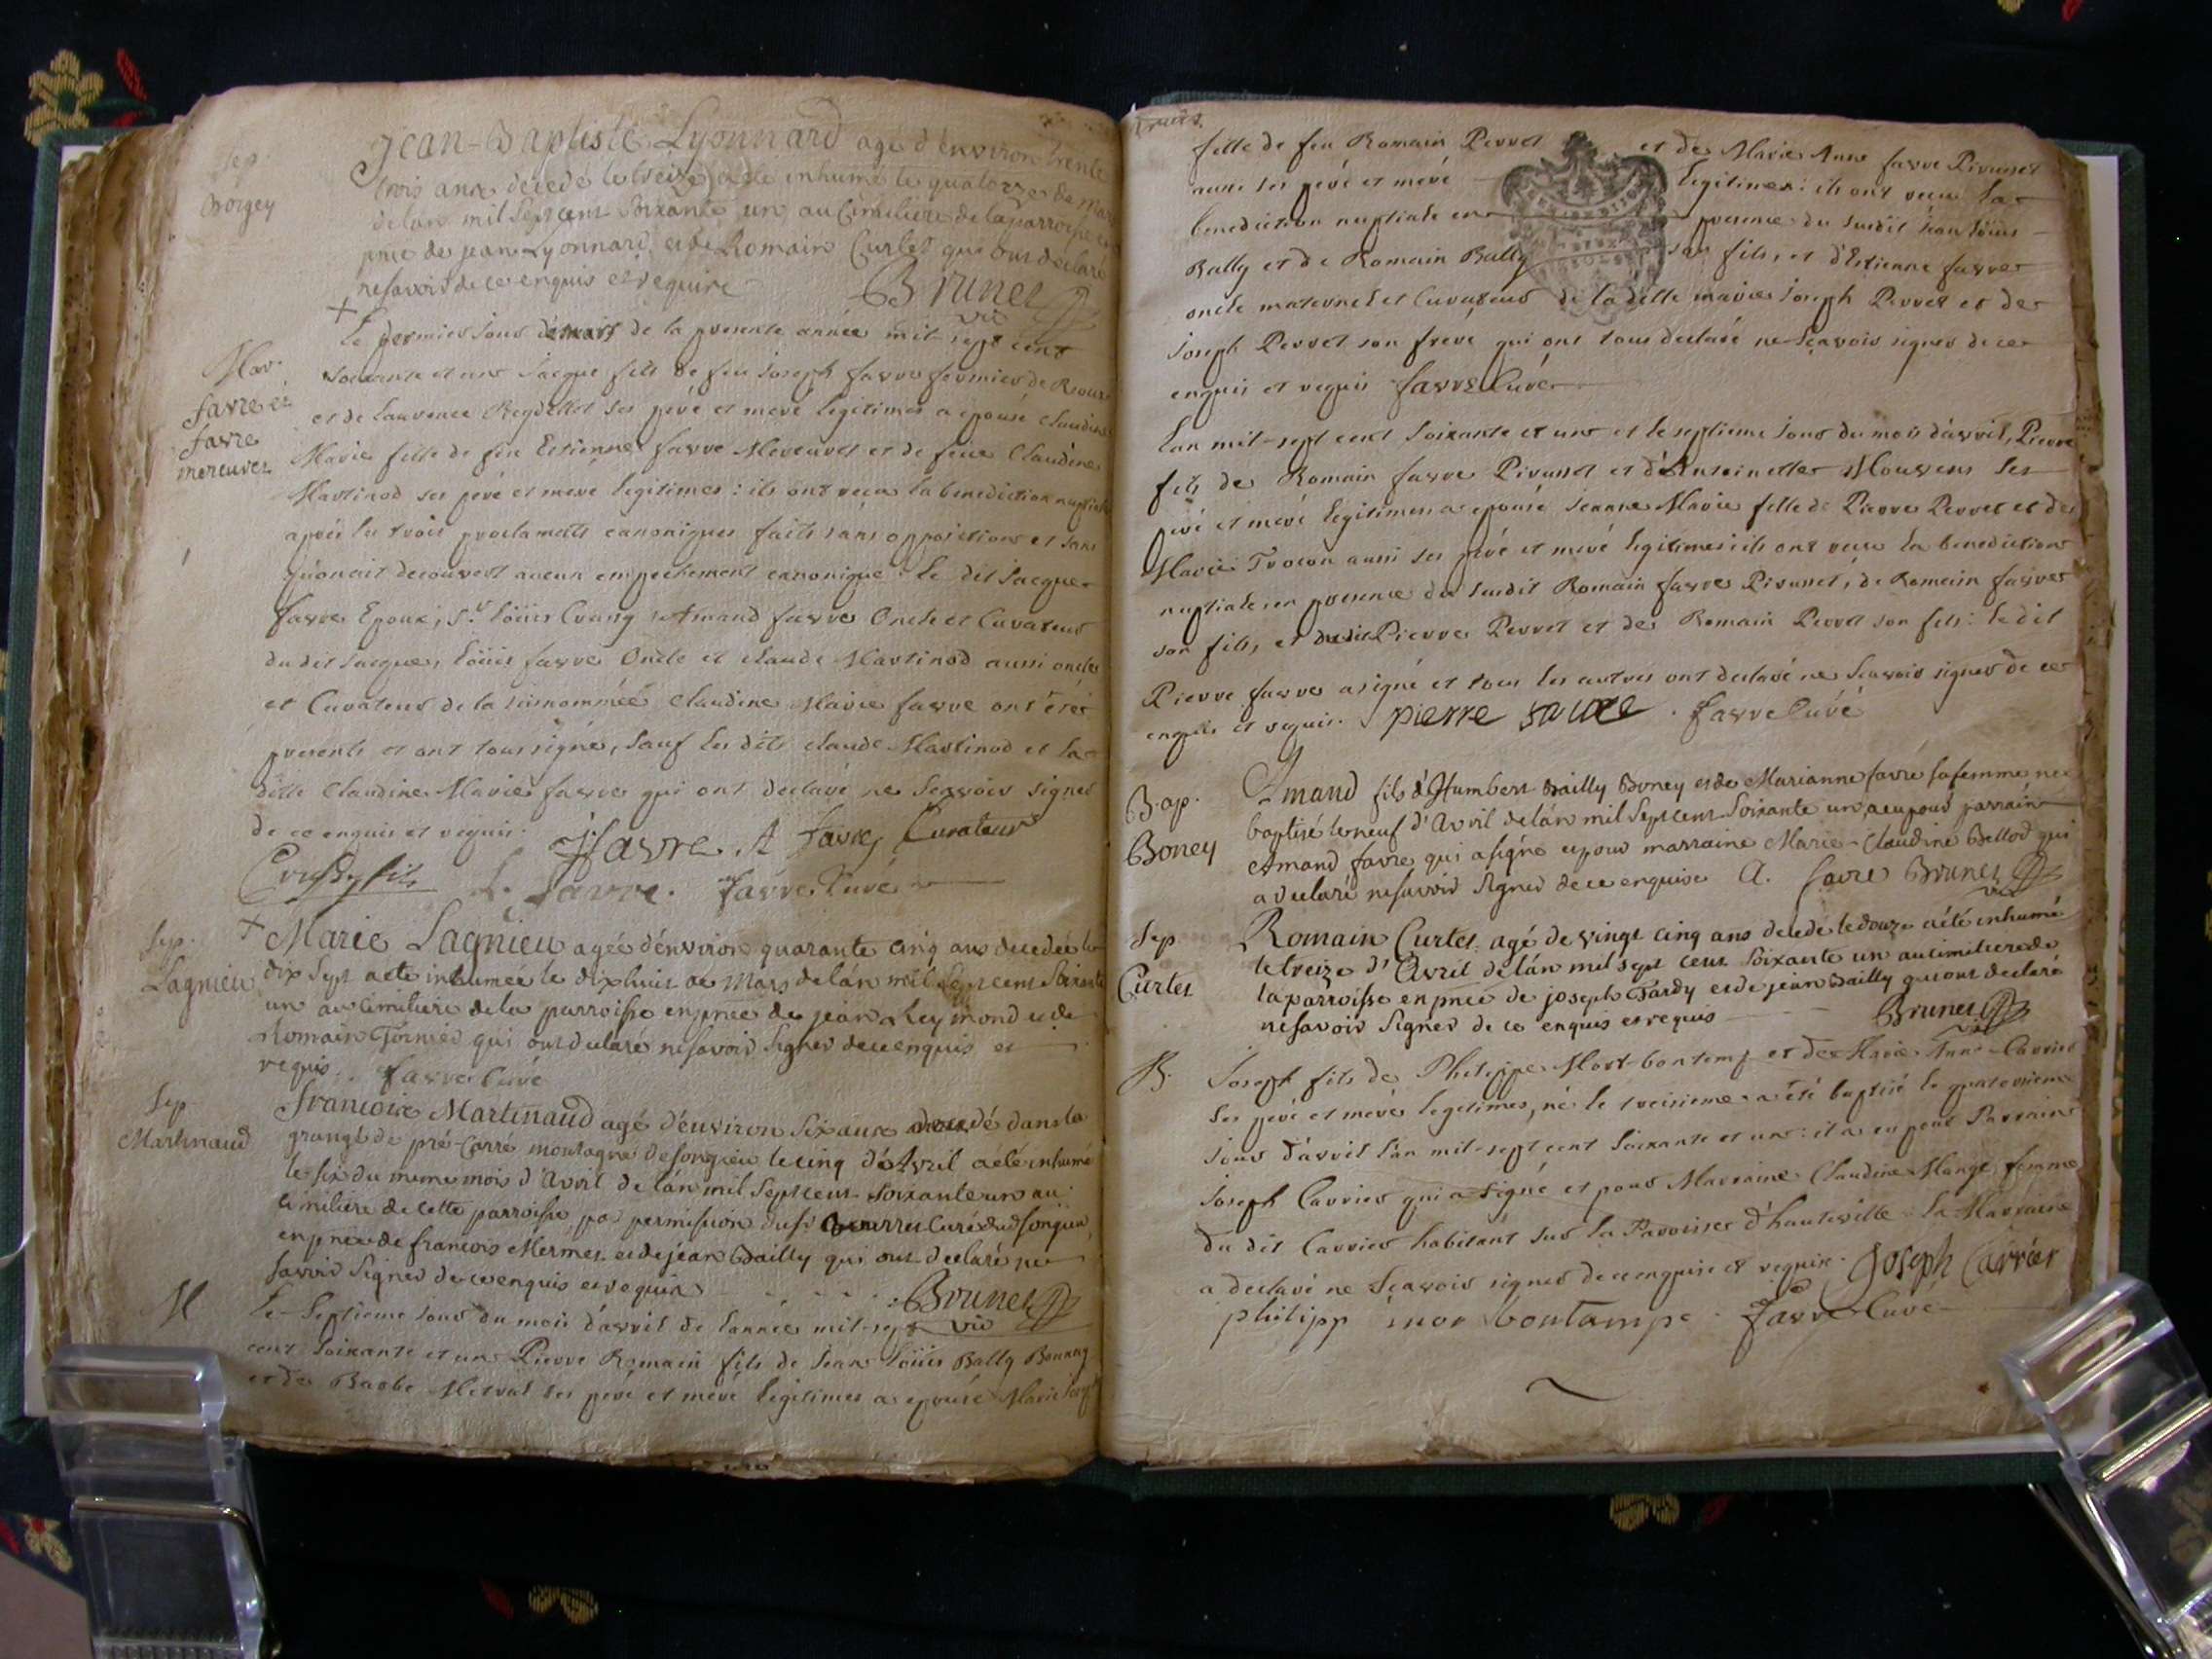 Sep.
Borgey
Jean-Baptiste Lyonnard agé d'environ trente
trois ans decedé le treize a été inhumé le quatorze de mars
de lan mil sept cent soixante un au cimiliere de la parroisse en
pnce de jean Lyonnard et de Romain Curtet qui ont declaré
ne savoir de ce enquis et require Brunet vic
Mar.
favre et
favre
mereuvet
Le premier jour de mars de la presente année mil sept cent
soixante et un Jacque fils de feu Joseph favre fermier de
et de Laurence Reydellet ses peré et meré legitimes a epousé claudine
Marie fille de feu Estienne favre Mereuvet et de feüe Claudine
Martinod ses peré et meré legitimes : ils ont receu la benediction nuptiale
aprés les trois proclamats canoniques faits sans oppositions et sans
qu'on ait decouvert aucun empechement canonique : le dit Jacque
favre Epoux, Sr. Loüis Amand favre Oncle et Curateur
du dit Jacque, Loüis favre Oncle et claude Martinod aussi oncle
et Curateur de la surnommée claudine Marie favre ont étés
presents et ont tous signés, sauf les dits claude Martinod et la
ditte Claudine Marie favre qui ont declaré ne scavoir signer
de ce enquis et requis. Jfavre A favre Curateur
fils L. favre. favre Curé
Sep.
Lagnieu
Marie Lagnieu agée d'environ quarante cinq ans decedée le
dix sept a été inhumée le dixhuit de Mars de lán mil sept cent soixante
un au cimiliere de la parroisse en pnce de jean Reymond et de
Romain Tornier qui ont declaré ne savoir signer de ce enquis et
requis. favre Curé
Sep
Martinaud
francoix Martinaud agé d'environ six ans decedé dans la
grange de pré-Carré montagne de songieu le cinq d'Avril a été inhumé
le six du meme mois d'Avril de lán mil sept cent soixante un au
cimiliere de cette parroisse par permission du sr. Curé dud songieu,
en pnce de francois Mermet et de jean Bailly qui ont declaré ne
savoir signer de ce enquis et requis Brunet vic
M
Le septieme jour du mois d'avril de lannée mil-sept
cent soixante et un Pierre Romain fils de Jean Loüis Bally
et de Barbe Mervat ses peré et meré legitimes a epousé Marie Joseph
fille de feu Romain Perret et de Marie Anne favre Pirunet
aussi ses peré et meré legitimes : ils ont receu la
benediction nuptiale en presence du susdit jean Loüis
Bally et de Romain Bally son fils, et d'Estienne favre
oncle maternel et Curateur de la ditte marie Joseph Perret et de
Joseph Perret son frere qui ont tous declaré ne scavoir signer de ce
enquis et requis favre Curé
Lan mil-sept cent soixante et un et le septieme jour du mois d'avril, Pierre
fils de Romain favre Pirunet et d'Antoinette ses
peré et meré legitimes a epousé Jeanne Marie fille de Pierre Perret et de
Marie Trocon aussi ses peré et meré legitimes : ils ont receu la benediction
nuptiale en presence du susdit Romain favre Pirunet, de Romain favre
son fils, et dudit Pierre Perret et de Romain Perret son fils : le dit
Pierre favre a signé et tous les autres ont declaré ne scavoir signer de ce
enquis et requis. pierre favre . favre Curé
Bap.
Boney
Amand fils d'Humbert Bailly Boney et de Marianne favre sa femme né
baptisé le neuf d'Avril de lán mil sept cent soixante un, a eu pour parrain
Amand favre qui a signé et pour marraine Marie-Claudine Bellod qui
a declaré ne savoir signer de ce enquise A. favre Brunet vic
Sep
Curtet
Romain Curtet agé de vingt cinq ans decedé le douze a été inhumé
le treize d'Avril de lán mil sept cent soixante un au cimiliere de
la parroisse en pnce de joseph Tardy et de jean Bailly qui ont declaré
ne savoir signer de ce enquis et requis Brunet vic
B.
Joseph fils de Philippe Mort-bontemp et de Marie Anne Carrier
ses peré et meré legitimes, né le treizieme a été baptisé le quatorzieme
jour d'avril lán mil-sept cent soixante et un : il a eu pour Parrain
Joseph Carrier qui a signé et pour Marraine Claudine Mange femme
du dit Carrier habitant sur la Paroisse d'hauteville La Marraine
a declaré ne scavoir signer de ce enquise et requise. Joseph Carrier
philipp mor bontampe . favre Curé